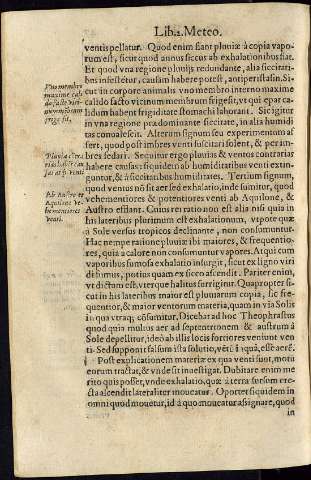 Lib. 2. Meteo.
ventis pellatur. Quod enim siant pluuiæ à copia vapo-
rum est, sicut quod annus siccus ab exhalationibus fiat.
Et quod vna regione pluuijs redundante, alia siccitati-
bus infestetur, causam habere potest, antiperistasin. Si-
cut in corpore animalis vno membro interno maxime
calido facto vicinum membrum frigescit, vt qui epar ca-
lidum habent frigiditate stomachi laborant. Sic igitur
in vna regione prædominante siccitate, in alia humidi
tas conualescit. Alterum signum seu experimentum as
sert, quod post imbres venti suscitari solent, & per im-
bres sedari. Sequitur ergo pluuias & ventos contrarias
habere causas: siquidem ab humiditatibus venti extin-
guntur, & à siccitatibus humiditates. Tertium signum,
quod ventus nō sit aer sed exhalatio, inde sumitur, quod
vehementiores & potentiores venti ab Aquilone, &
Austro efflant. Cuius rei ratio non est alia nisi quia in
his lateribus plurimum est exhalationum, vtpote quæ
à Sole versus tropicos declinante, non consumuntur.
Hac nempe ratione pluuiæ ibi maiores, & frequentio-
res, quia à calore non consumuntur vapores. At qui cum
vaporibus fumosa exhalatio insurgit, sicut ex ligno viri
di fumus, potius quam ex sicco ascendit. Pariter enim,
vt dictum est, vterque halitus surrigitur. Quapropter si-
cut in his lateribus maior est pluuiarum copia, sic fre-
quentior, & maior ventorum materia, quam in via Solis
in qua vtraq; cōsumitur, Dicebat ad hoc Theophrastus
quod quia multus aer ad septentrionem & austrum à
Sole depellitur, ideò ab illis locis fortiores veniunt ven-
ti. Sed supponit falsum ista solutio,
Post explicationem materiæ ex qua venti fiunt, motū
eorum tractat, & vnde sit inuestigat. Dubitare enim me
rito quis posset, vnde exhalatio, quæ à terra sursum ere-
cta ascendit lateraliter moueatur. Oportet siquidem in
omni quod mouetur, id à quo moueatur assignare, quod
in
Vno membro
maxime cali
do facto vici-
num membrum
frige sit,
Pluuiæ & ven
ti
Ab Austro et
Aquilone ve-
hementiores
venti.